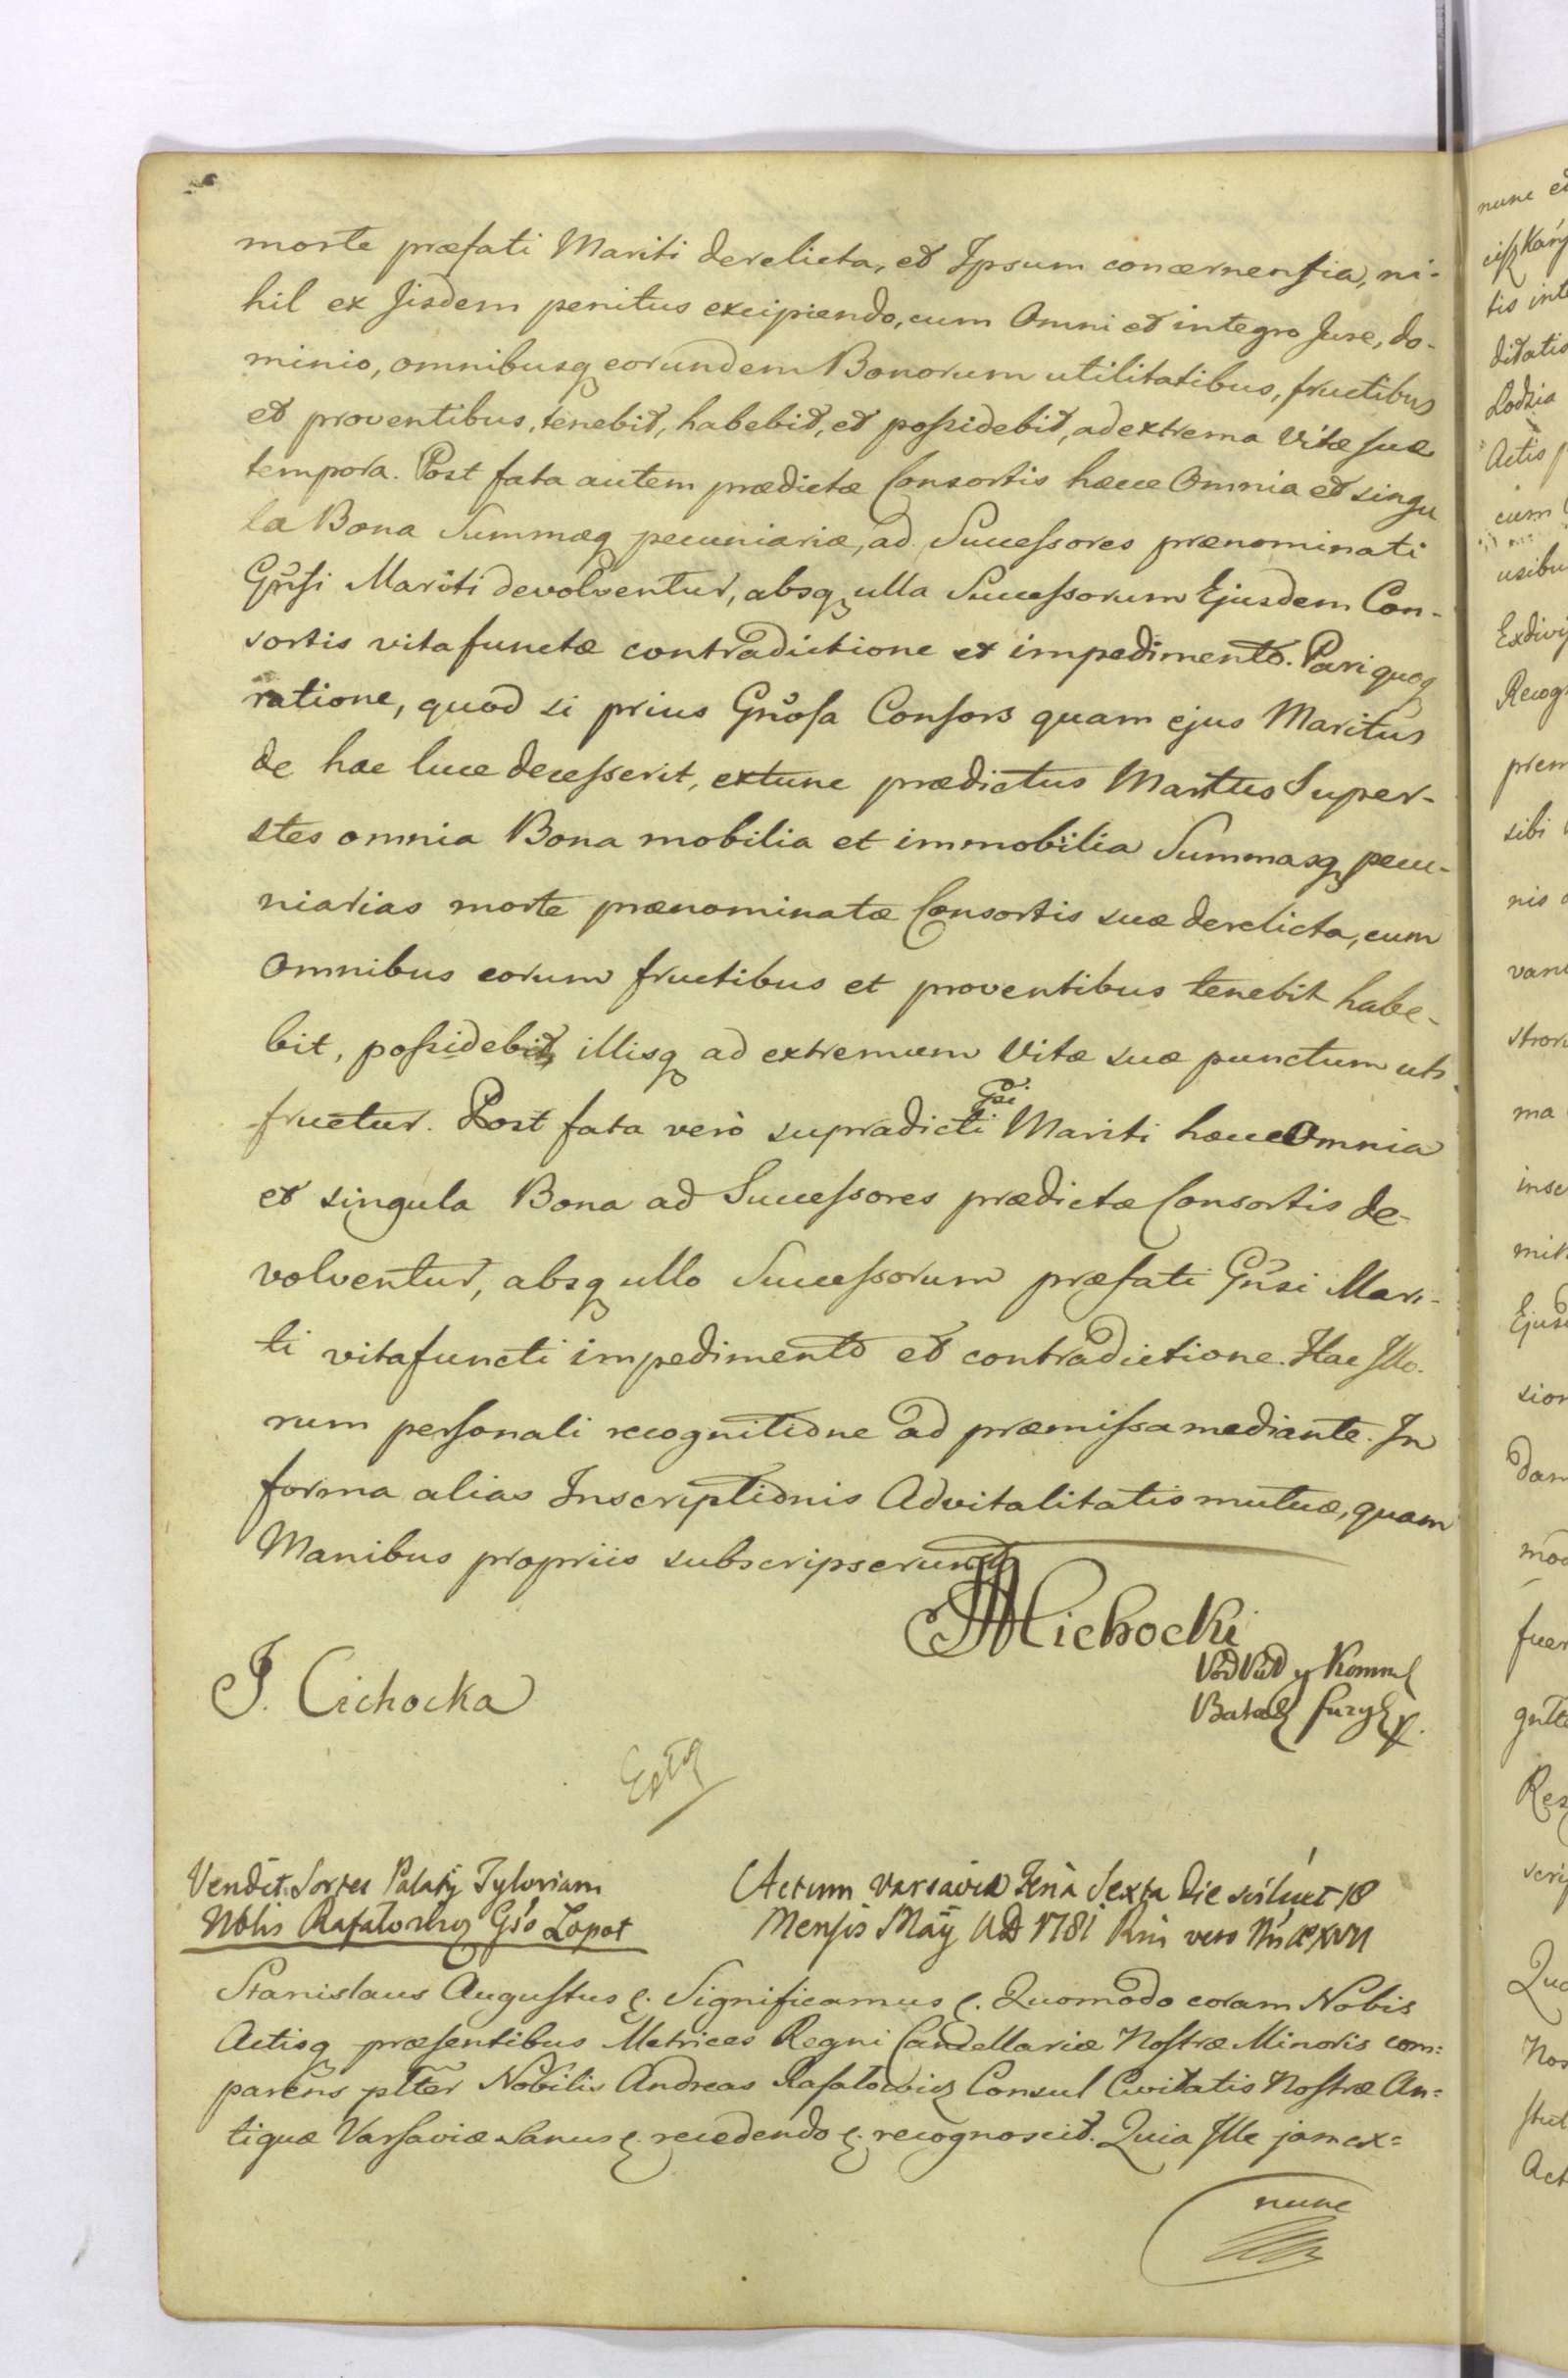 morte præfati Mariti derelicta, et Ipsum concernentia, ni-
hil ex Jisdem penitus excipiendo, cum Omni et integro Jure, do-
minio, omnibusq eorundem Bonorum utilitatibus, fructibus
et proventibus, tenebit, habebit, et possidebit, ad extrema Vitæ suæ
tempora. Post fata autem prædictæ Consortis hæcce Omnia et singu
la Bona Summæq pecuniariæ, ad Successores prænominati
Gnsi Mariti devolventur, absq ulla Successorum Ejusdem Con-
sortis vitafunctæ contradictione et impedimento. Pari quoq
ratione, quod si prius Gnosa Consors quam ejus Maritus
de hac luce decesserit, extunc prædictus Maritus Super-
stes omnia Bona mobilia et immobilia Summasq pecu-
niarias morte prænominatæ Consortis suæ derelicta, cum
Omnibus eorum fructibus et proventibus tenebit habe-
bit, possidebit, illisq ad extremum Vitæ suæ punctum uti
fruetur. Post fata verò supradicti Gsi Mariti hæcce Omnia
et singula Bona ad Successores prædictæ Consortis de-
volventur, absq ullo Successorum præfati Gnsi Mari-
ti vitafuncti impedimento et contradictione. Hac Illo-
rum personali recognitione ad præmissa mediante. In
forma alias Inscriptionis Advitalitatis mutuæ, quam
Manibus propriis subscripserunt
Michocki
J. Cichocka
Vendit. Sortes Palatÿ
Nblis Gso Lopot
Actum Varsaviæ Feria Sexta Die scilicet 18
Mensis Maÿ AD 1781 Rni vero
Stanislaus Augustus &. Significamus &. Quomodo coram Nobis
Actisq præsentibus Metrices Regni Cancellariæ Nostræ Minoris com=
parens plter Nobilis Andreas Rafałowicz Consul Civitatis Nostræ An=
tiquæ Varsaviæ Sanus &. recedendo &. recognoscit. Quia Ille jam ex=
nunc